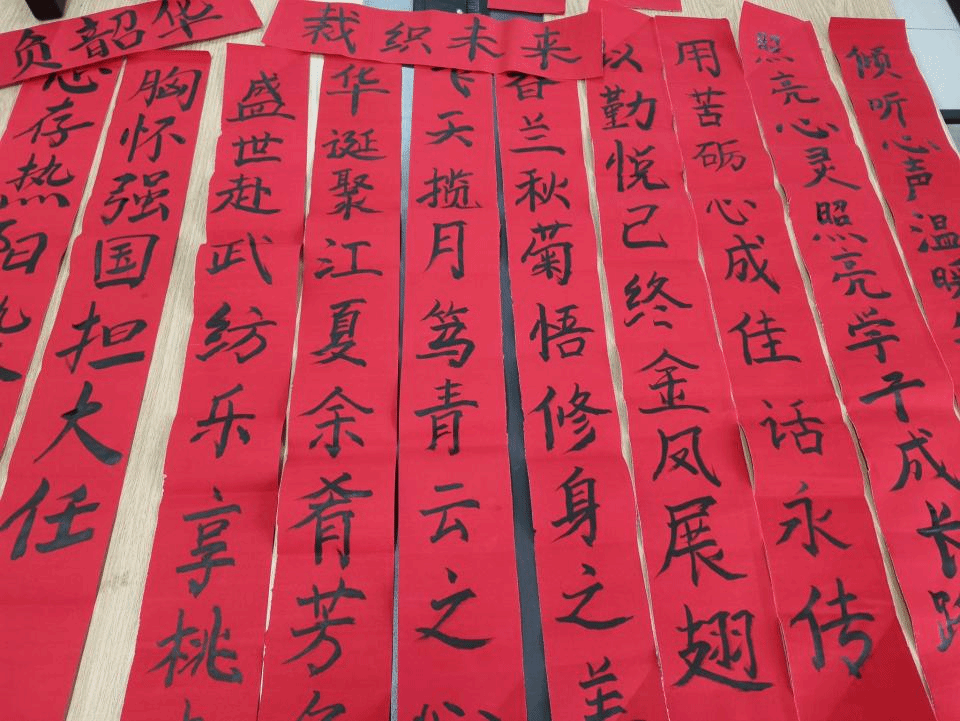 负韶华
裁织未来
心存热
胸怀强国担大任
盛世赴武纺乐享桃
华诞聚江夏余肴芳
飞天揽月笃青云之
春兰秋菊悟修身之
以勤悦己终金凤展翅
用苦砺心成佳话永传
照亮心灵照亮学子成长路
倾听心声温暖